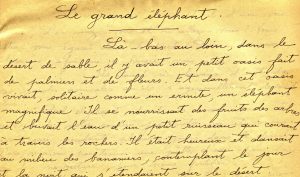 Le grand éléphant.
Là-bas au loin, dans le
désert de sable, il y avait un petit oasis fait
de palmiers et de fleurs. Et dans cet oasis
vivait, solitaire comme un ermite un éléphant
magnifique. Il se nourrissait des fruits des arbres
et buvait l'eau d'un petit ruisseau qui courait
à travers les rochers. Il était heureux et dansait
au milieu des bananiers, contemplant le jour
et la nuit qui s'étendaient sur le désert.